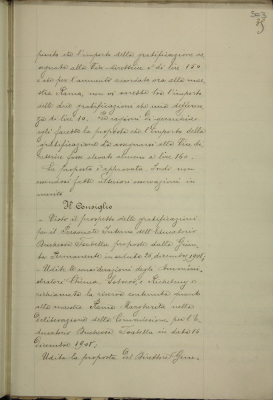 posto che l'importo della gratificazione as
segnata alla Vice direttrice è di lire 150
e che per l'aumento accordato ora alla mae
stra Rama, non vi sarebbe tra l'importo
delle due gratificazioni che una differen
za di lire 10. Per ragioni di gerarchia
voti farebbe la proposta che l'importo della
gratificazione da assegnarsi alla Vice di
rettrice fosse elevato almeno a lire 160.
La proposta è approvata. Indi non
essendosi fatte ulteriori osservazioni in
merito
Il Consiglio
- Visto il prospetto delle gratificazioni
per il Personale Interno dell'Educatorio
proposte dalla Giun
ta Permanente in seduta 26 dicembre 1905;
- Udite le considerazioni degli Ammini
stratori
richiamata la riserva contenuta quanto
alla maestra Rama Margherita nella
deliberazione della Commissione per l'E
ducatorio in data 16
Dicembre 1905;
Udita la proposta